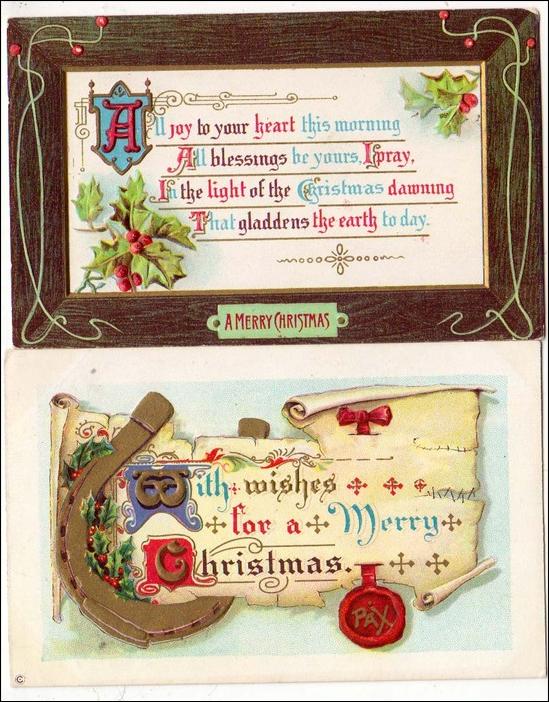 All joy to your heart this morning
All blessings be yours, I pray,
In the light of the Christmas dawning
That gladdens the earth to day.
A MERRY CHRISTMAS
With wishes
for a Merry
Christmas.
PAX
©